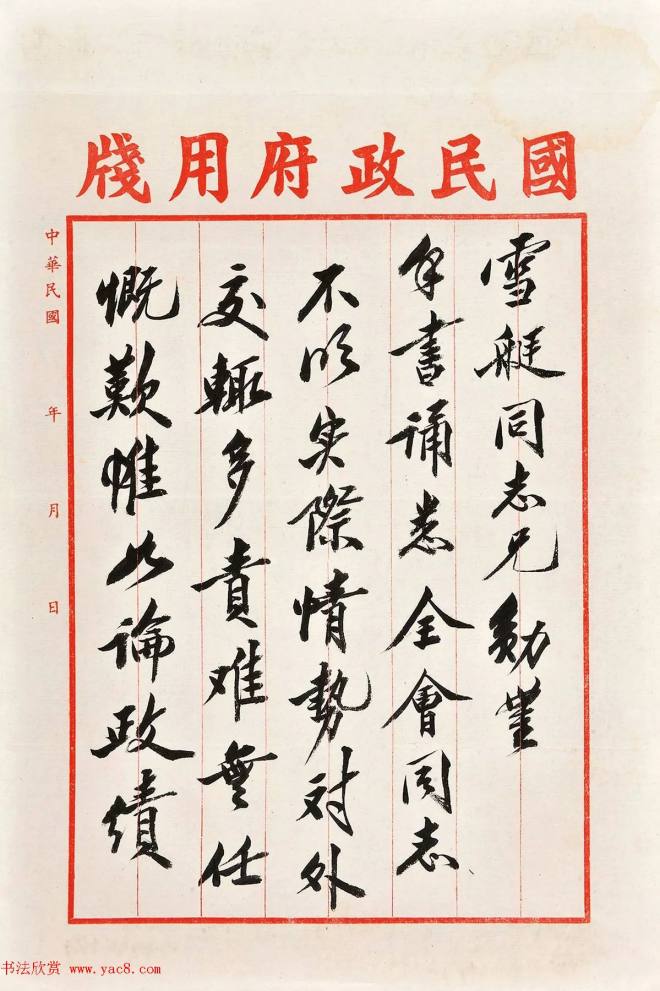 國民政府用牋
雪艇同志兄勛鑒
手書誦悉全會同志
不明实際情勢对外
交輒多責难無任
慨歎惟以論政績
中華民國 年 月 日
书法欣赏 www.yac8.com